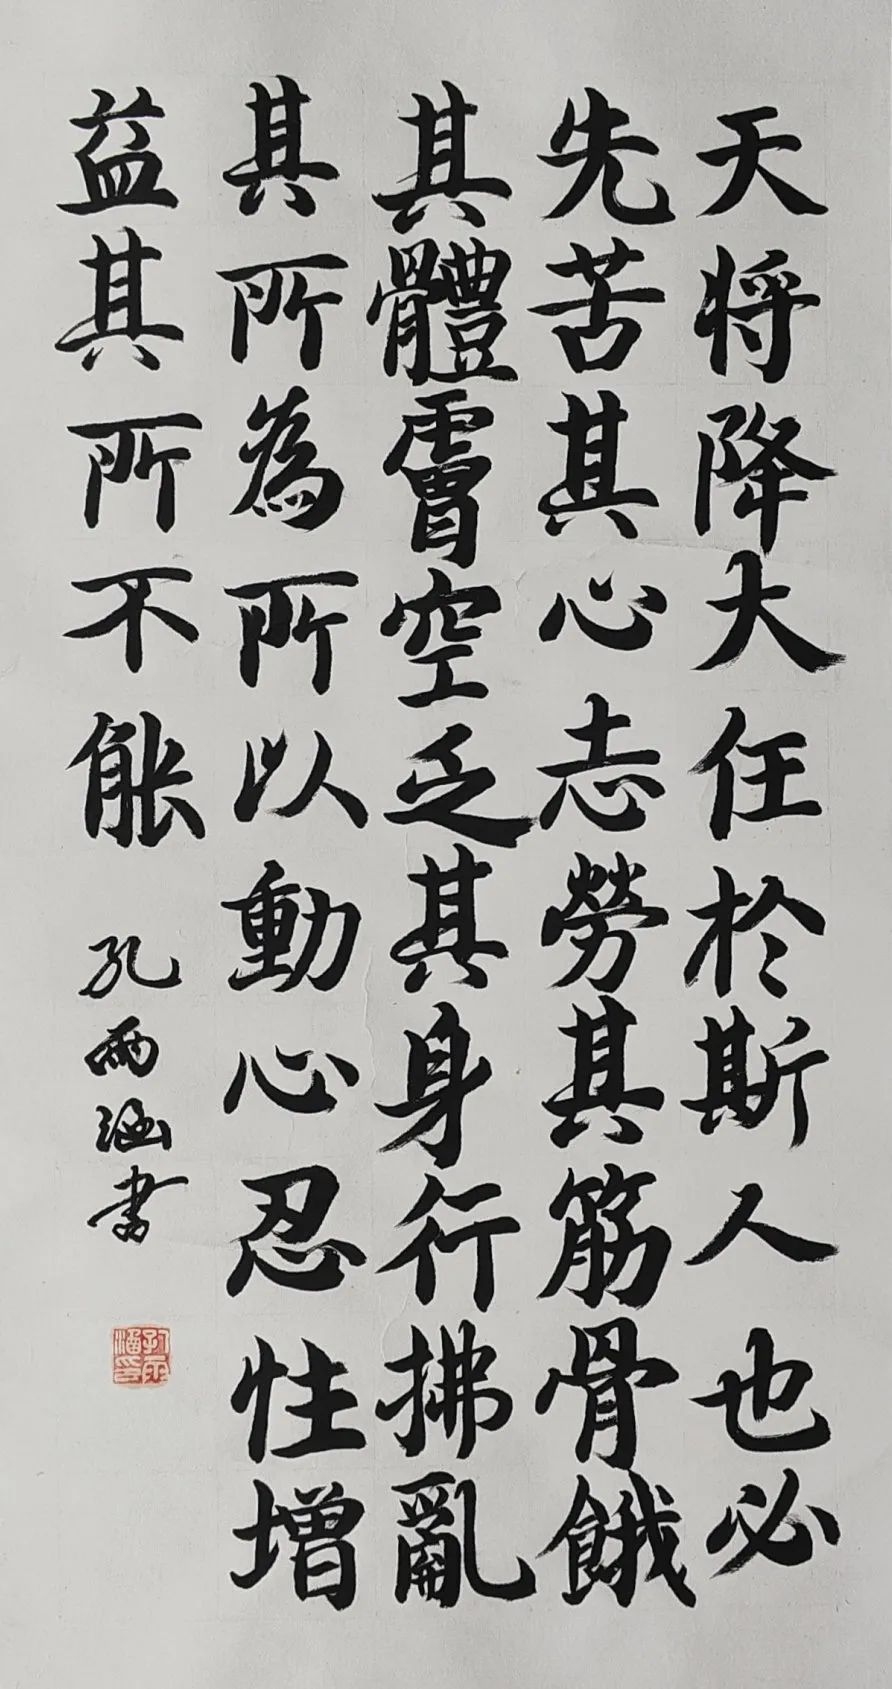 天將降大任於斯人也必
先苦其心志勞其筋骨餓
其體膚空乏其身行拂亂
其所為所以動心忍性增
益其所不能
孔雨涵書
孔雨涵印